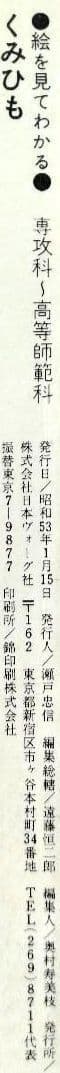 ●絵を見てわかる●
くみひも
専攻科〜高等師範科
発行日/昭和53年1月15日 発行人/瀬戸忠信 編集総轄/遠藤恒二郎 編集人/奥村寿美枝 発行所/
株式会社日本ヴォーグ社 〒162 東京都新宿区市ヶ谷本村町34番地 TEL(269)8711代表
振替東京7-9877 印刷所/錦印刷株式会社